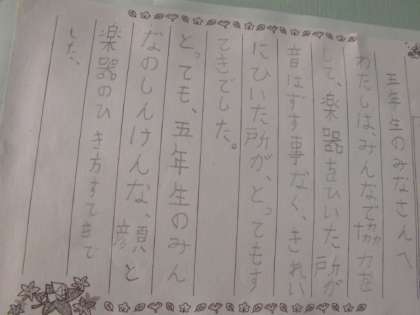 五年生のみなさんへ
わたしは、みんなで協力を
して、楽器をひいた所が
音はずす事なく、きれい
にひいた所が、とってもす
てきでした。
とっても、五年生のみん
なのしんけんな、顔と
楽器のひき方すてきで
した、